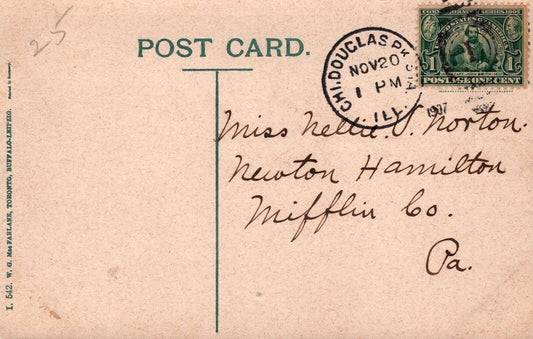 25
POST CARD.
CHI. DOUGLAS PK. STA.
NOV 20
1 PM
ILL.
1907
COMMEMORATIVE SERIES 1907
1 1
POSTAGE ONE CENT
Miss Nellie S. Norton.
Newton Hamilton
Mifflin Co.
Pa.
I. 542. W. G. MacFARLANE, TORONTO, BUFFALO-LEIPZIG. Printed in Germany.